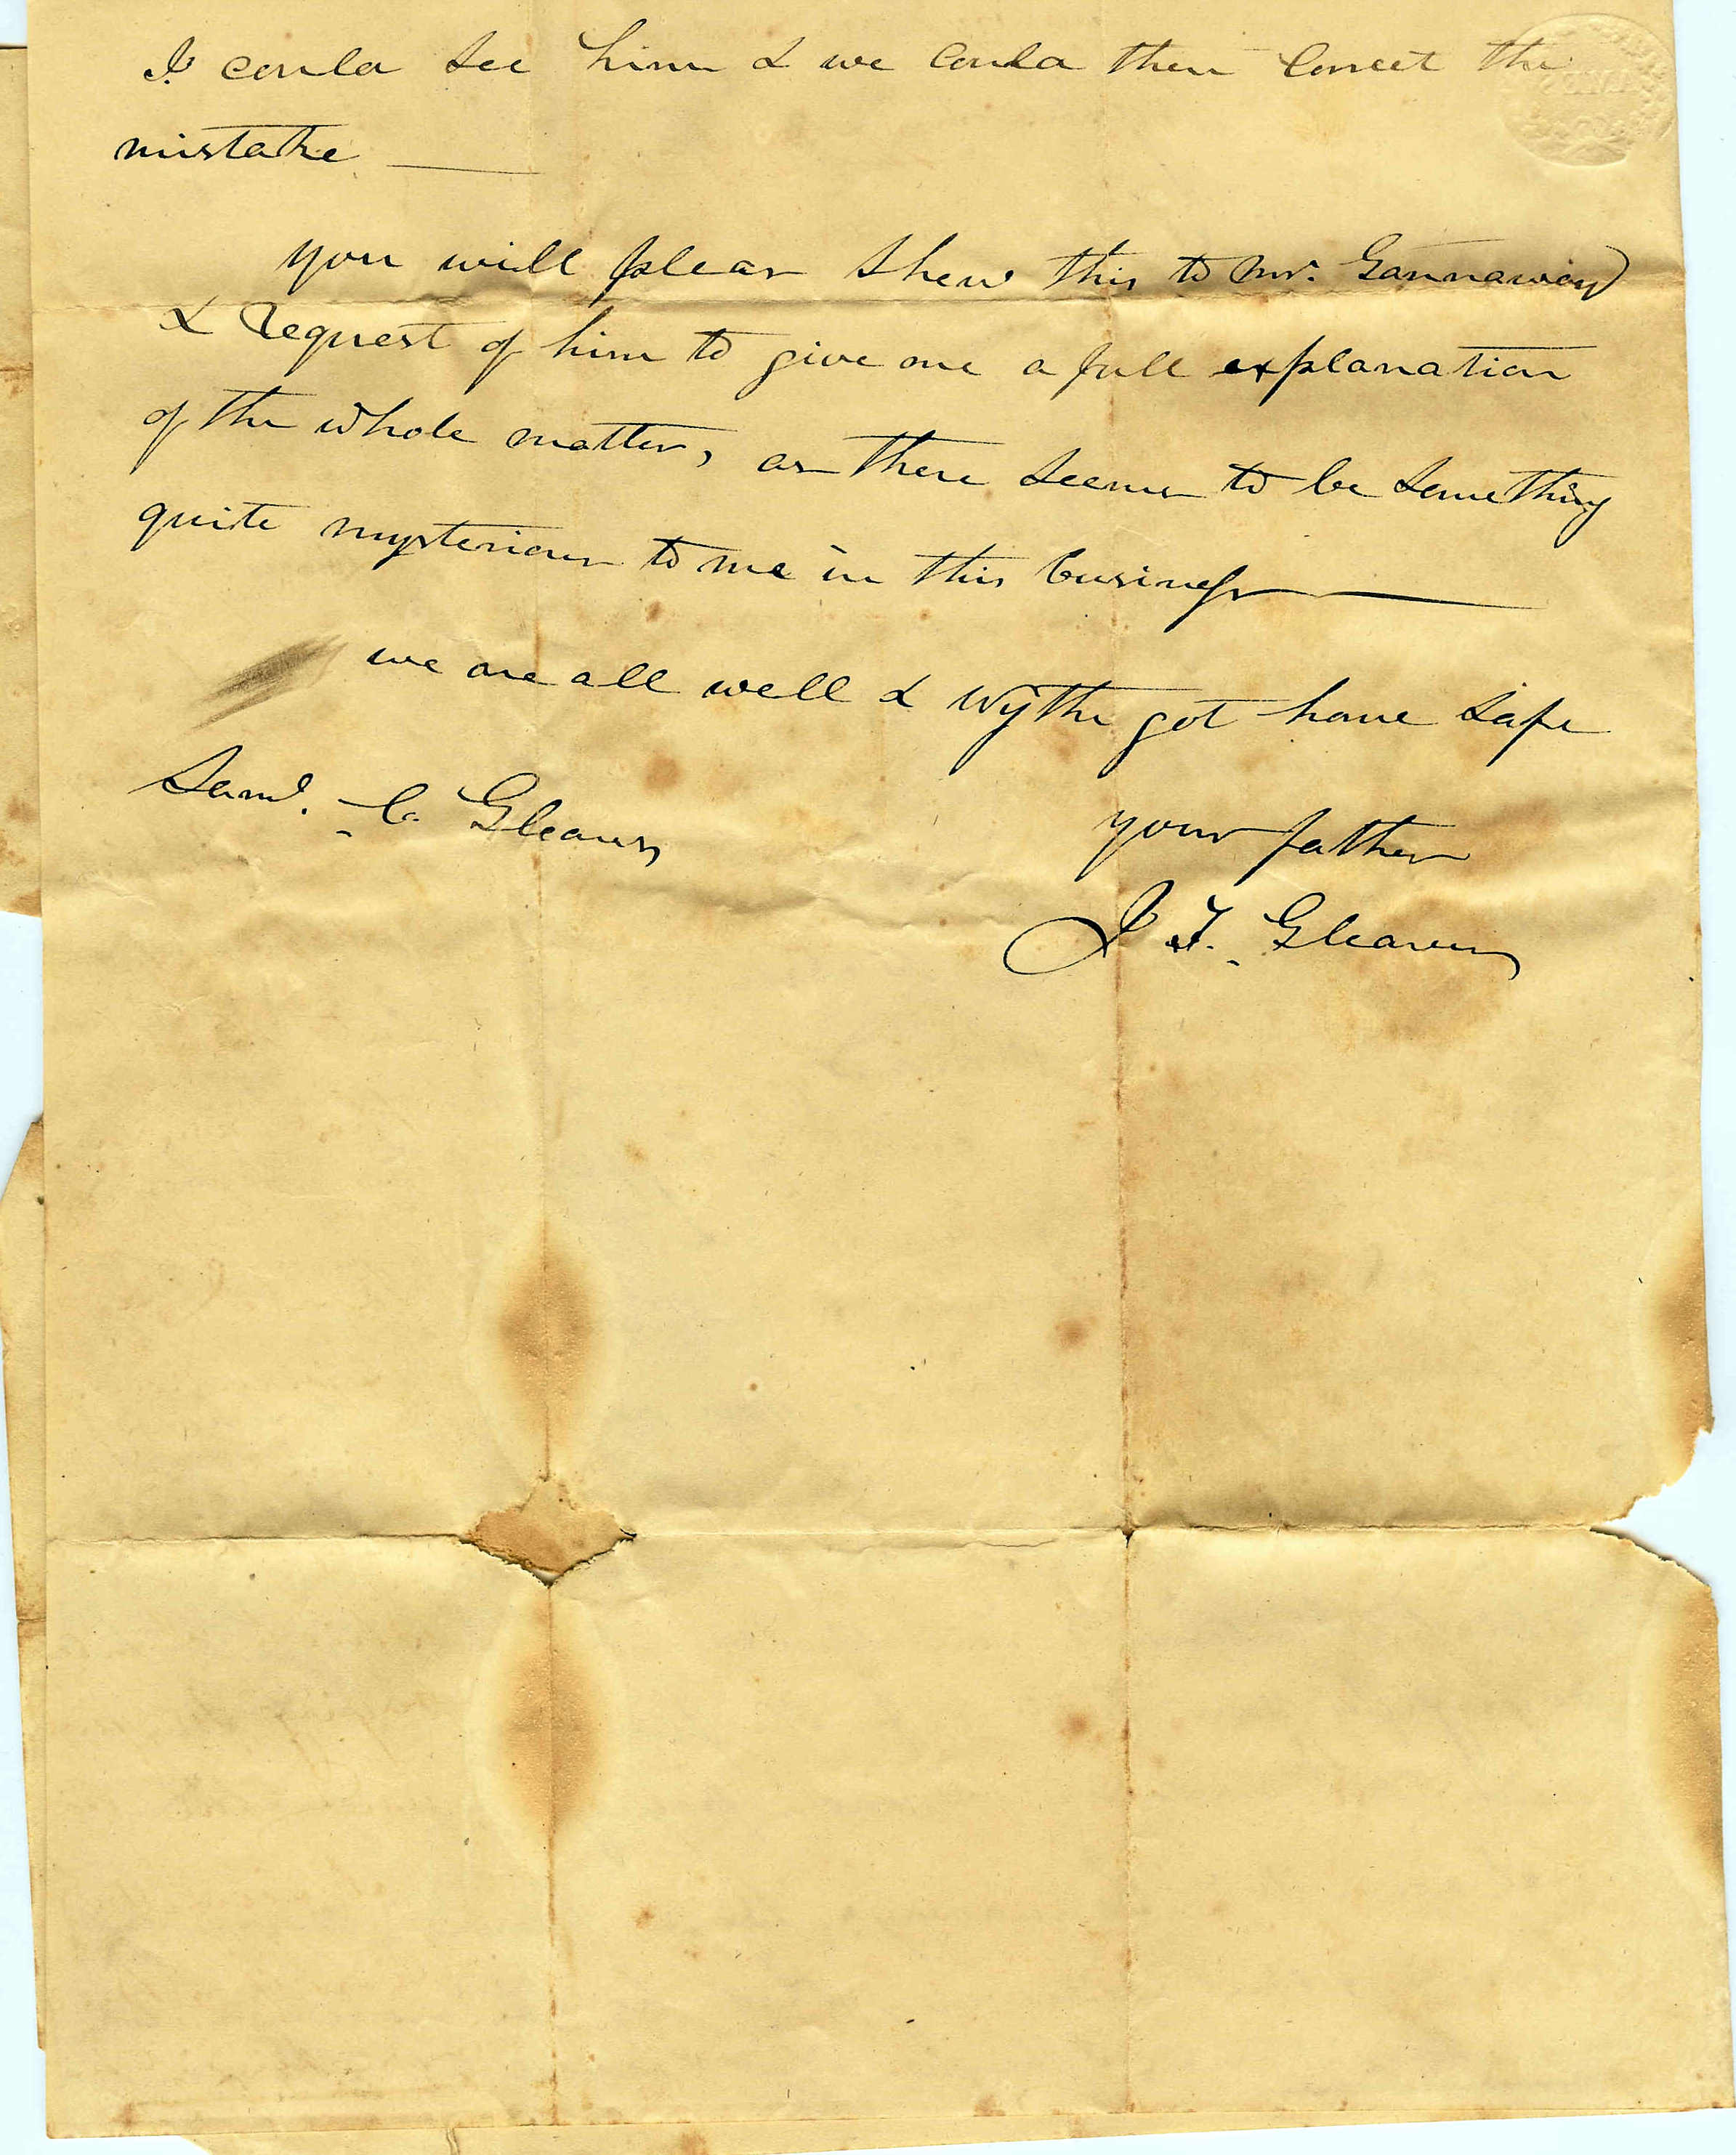 I could see him & we could then correct the
mistake —
you will pleas shew this to Mr. Gannaway
& Request of him to give me a full explanation
of the whole matter, as there seems to be something
quite mysterious to me in this business —
we are all well & Wythe got home safe
Saml. C. Gleaves
your father
J T. Gleaves